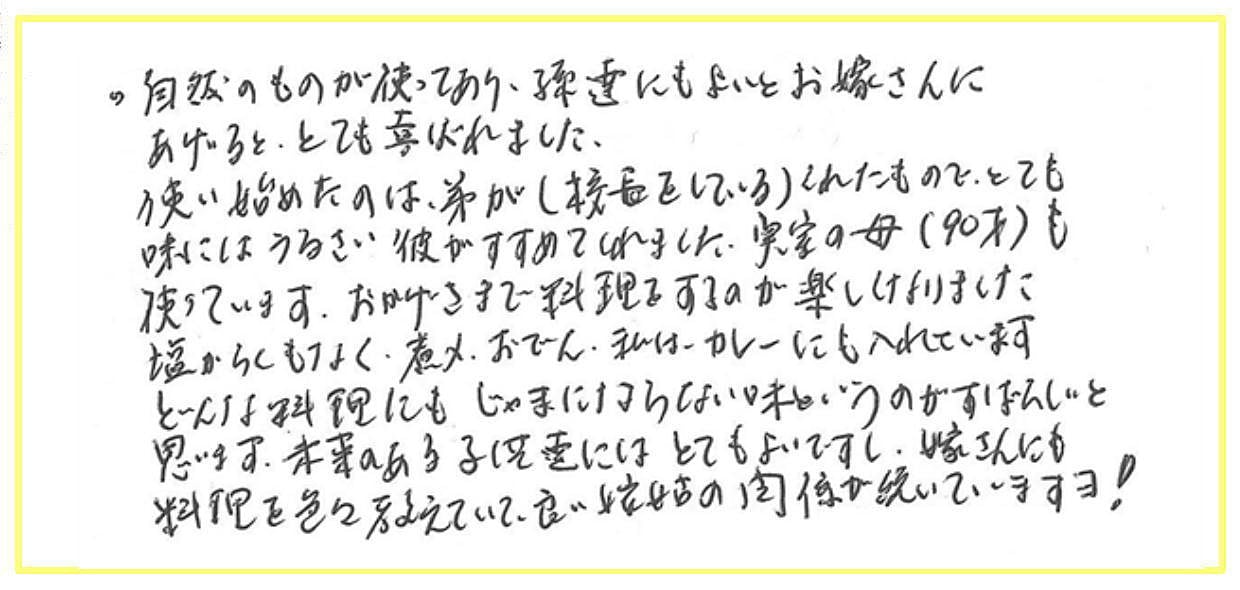 。自然のものが使ってあり、孫達にもよいとお嫁さんに
あげると、とても喜ばれました。
使い始めたのは、弟が(校長をしている)くれたもので、とても
味にはうるさい彼がすすめてくれました。実家の母(90才)も
使っています。おかげさまで料理をするのが楽しくなりました
塩からくもなく、煮〆、おでん、私はカレーにも入れています
どんな料理にもじゃまにならない味というのがすばらしいと
思います。未来のある子供達にはとてもよいですし、嫁さんにも
料理を色々教えていて、良い嫁姑の関係が続いていますヨ!